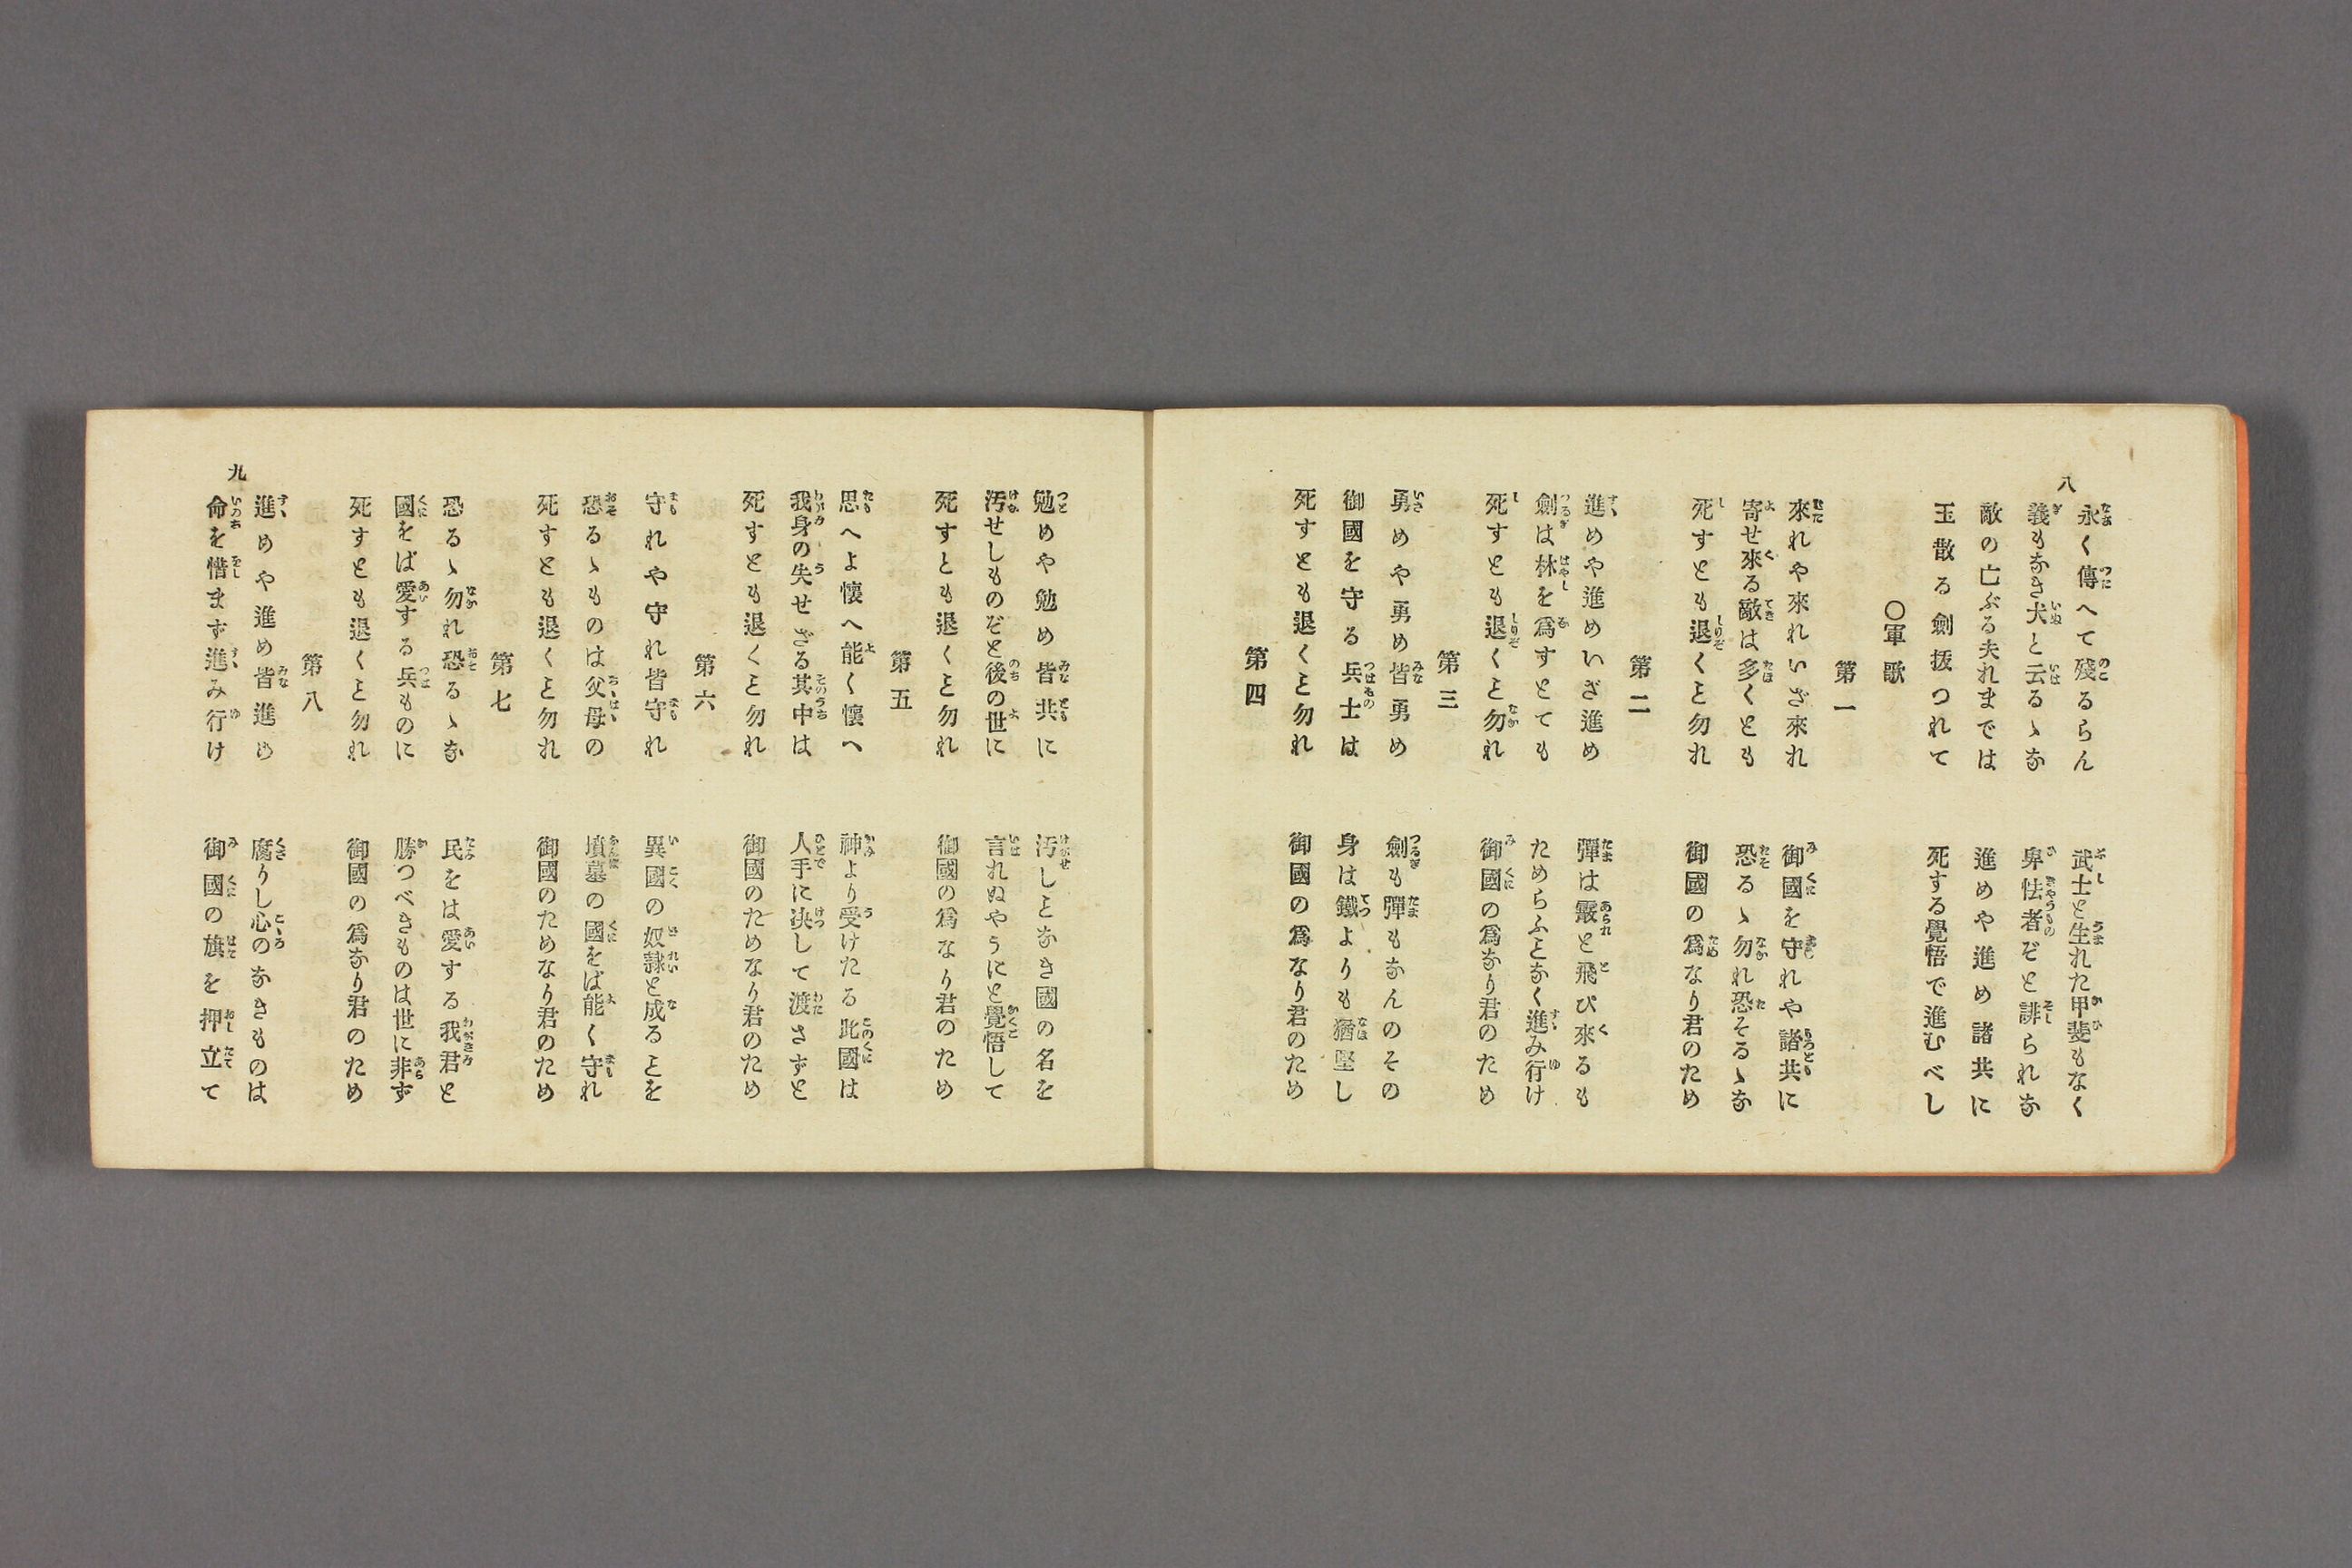 八
永く傳へて殘るらん　武士と生れた甲斐もなく
義もなき犬と云るゝな　卑怯者ぞと誹られな
敵の亡ぶる夫れまでは　進めや進め諸共に
玉散る劍拔つれて　死する覺悟で進むべし
〇軍歌
第一
來れや來れいざ來れ　御國を守れや諸共に
寄せ來る敵は多くとも　恐るゝ勿れ恐そるゝな
死すとも退くこと勿れ　御國の爲なり君のため
第二
進めや進めいざ進め　彈は霰と飛び來るも
劍は林を爲すとても　ためらふことなく進み行け
死すとも退くこと勿れ　御國の爲なり君のため
第三
勇めや勇め皆勇め　劍も彈もなんのその
御國を守る兵士は　身は鐵よりも猶堅し
死すとも退くこと勿れ　御國の爲なり君のため
第四
勉めや勉め皆共に　汚しことなき國の名を
汚せしものぞと後の世に　言れぬやうにと覺悟して
死すとも退くこと勿れ　御國の爲なり君のため
第五
思へよ懷へ能く懷へ　神より受けたる此國は
我身の失せざる其中は　人手に决して渡さずと
死すとも退くこと勿れ　御國のためなり君のため
第六
守れや守れ皆守れ　異國の奴隷と成ることを
恐るゝものは父母の　墳墓の國をば能く守れ
死すとも退くこと勿れ　御國のためなり君のため
第七
恐るゝ勿れ恐るゝな　民をは愛する我君と
國をば愛する兵ものに　勝つべきものは世に非ず
死すとも退くこと勿れ　御國の爲なり君のため
第八
進めや進め皆進め　腐りし心のなきものは
命を惜まず進み行け　御國の旗を押立て
九